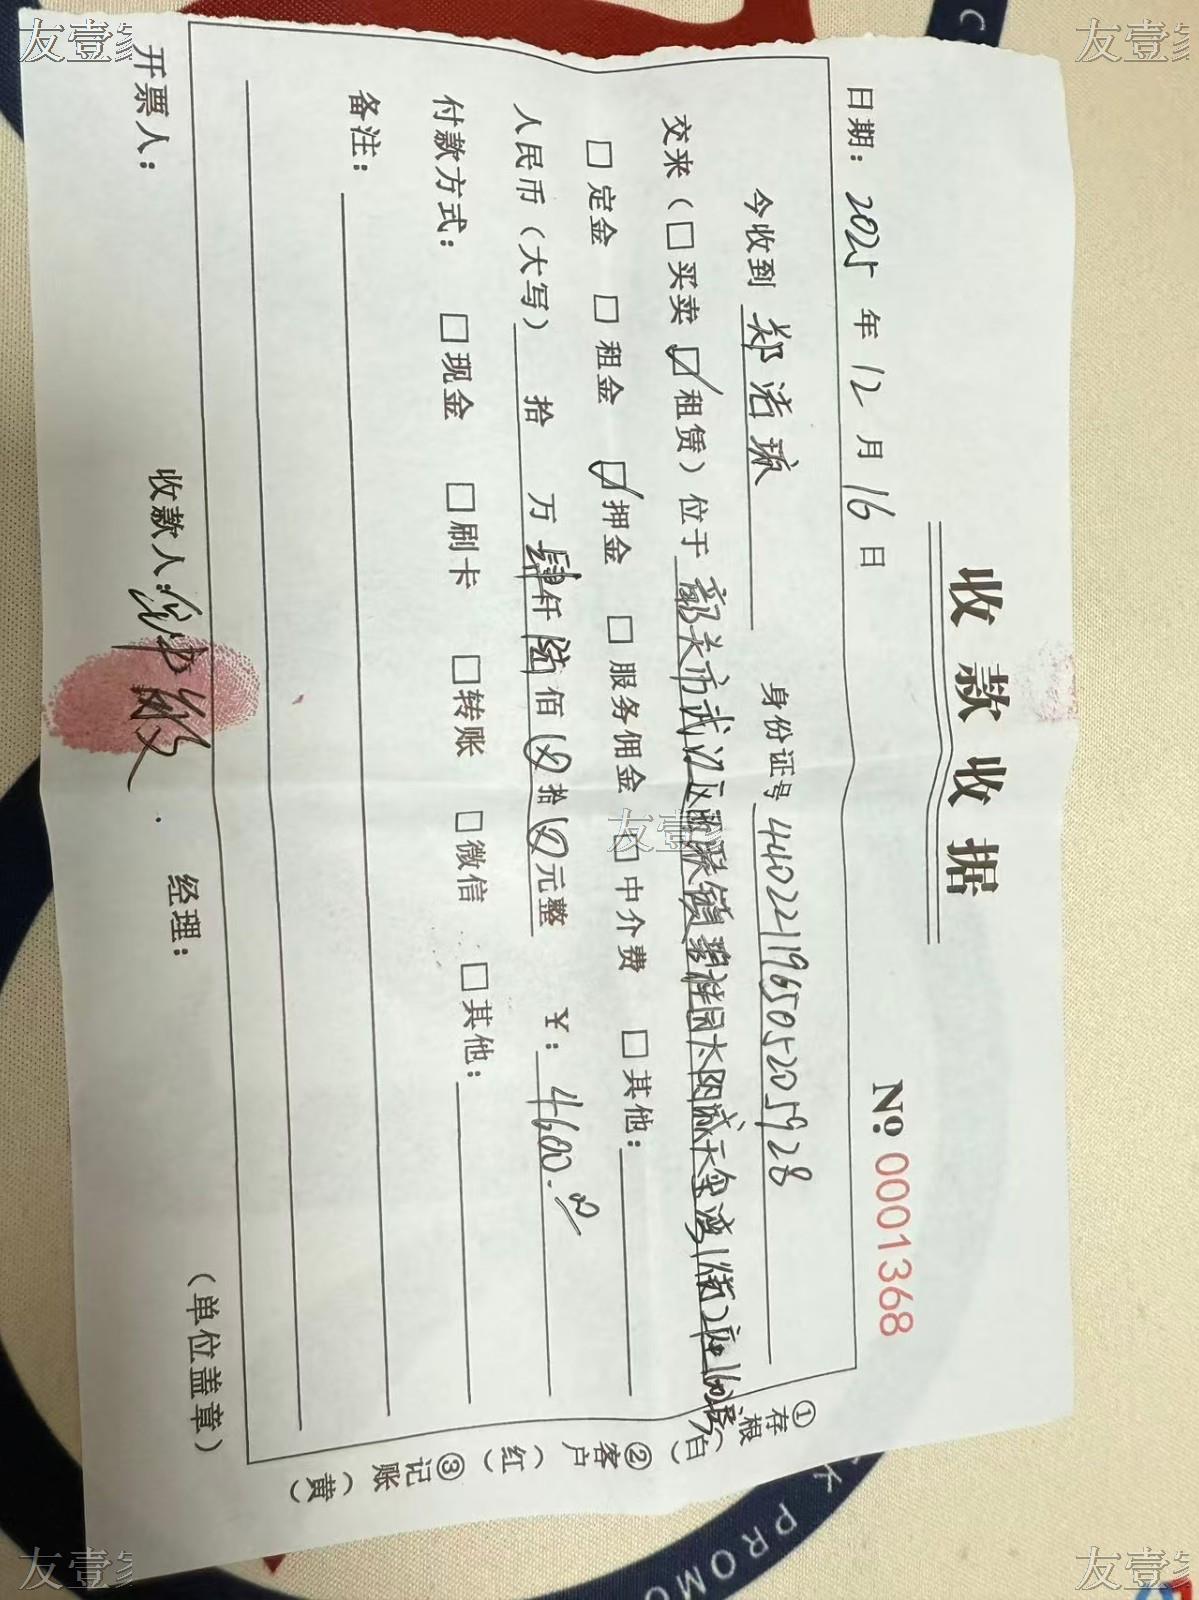 收款收据
No. 0001368
日期：2025年12月16日
今收到 郑洁琼 身份证号 440221196505205928
交来（□买卖 ☑租赁）位于 韶关市武江区西联镇碧桂园太阳城天玺湾1街2座160
□定金 □租金 ☑押金 □服务佣金 □中介费 □其他：
人民币（大写） 拾 万 肆仟 陆佰 拾 元整 ¥：4600.
付款方式： □现金 □刷卡 □转账 □微信 □其他：
备注：
开票人： 收款人： 经理： （单位盖章）
①存根（白）
②客户（红）
③记账（黄）
友壹家
友壹家
友壹家
友壹家
友壹家
C
K PROMO